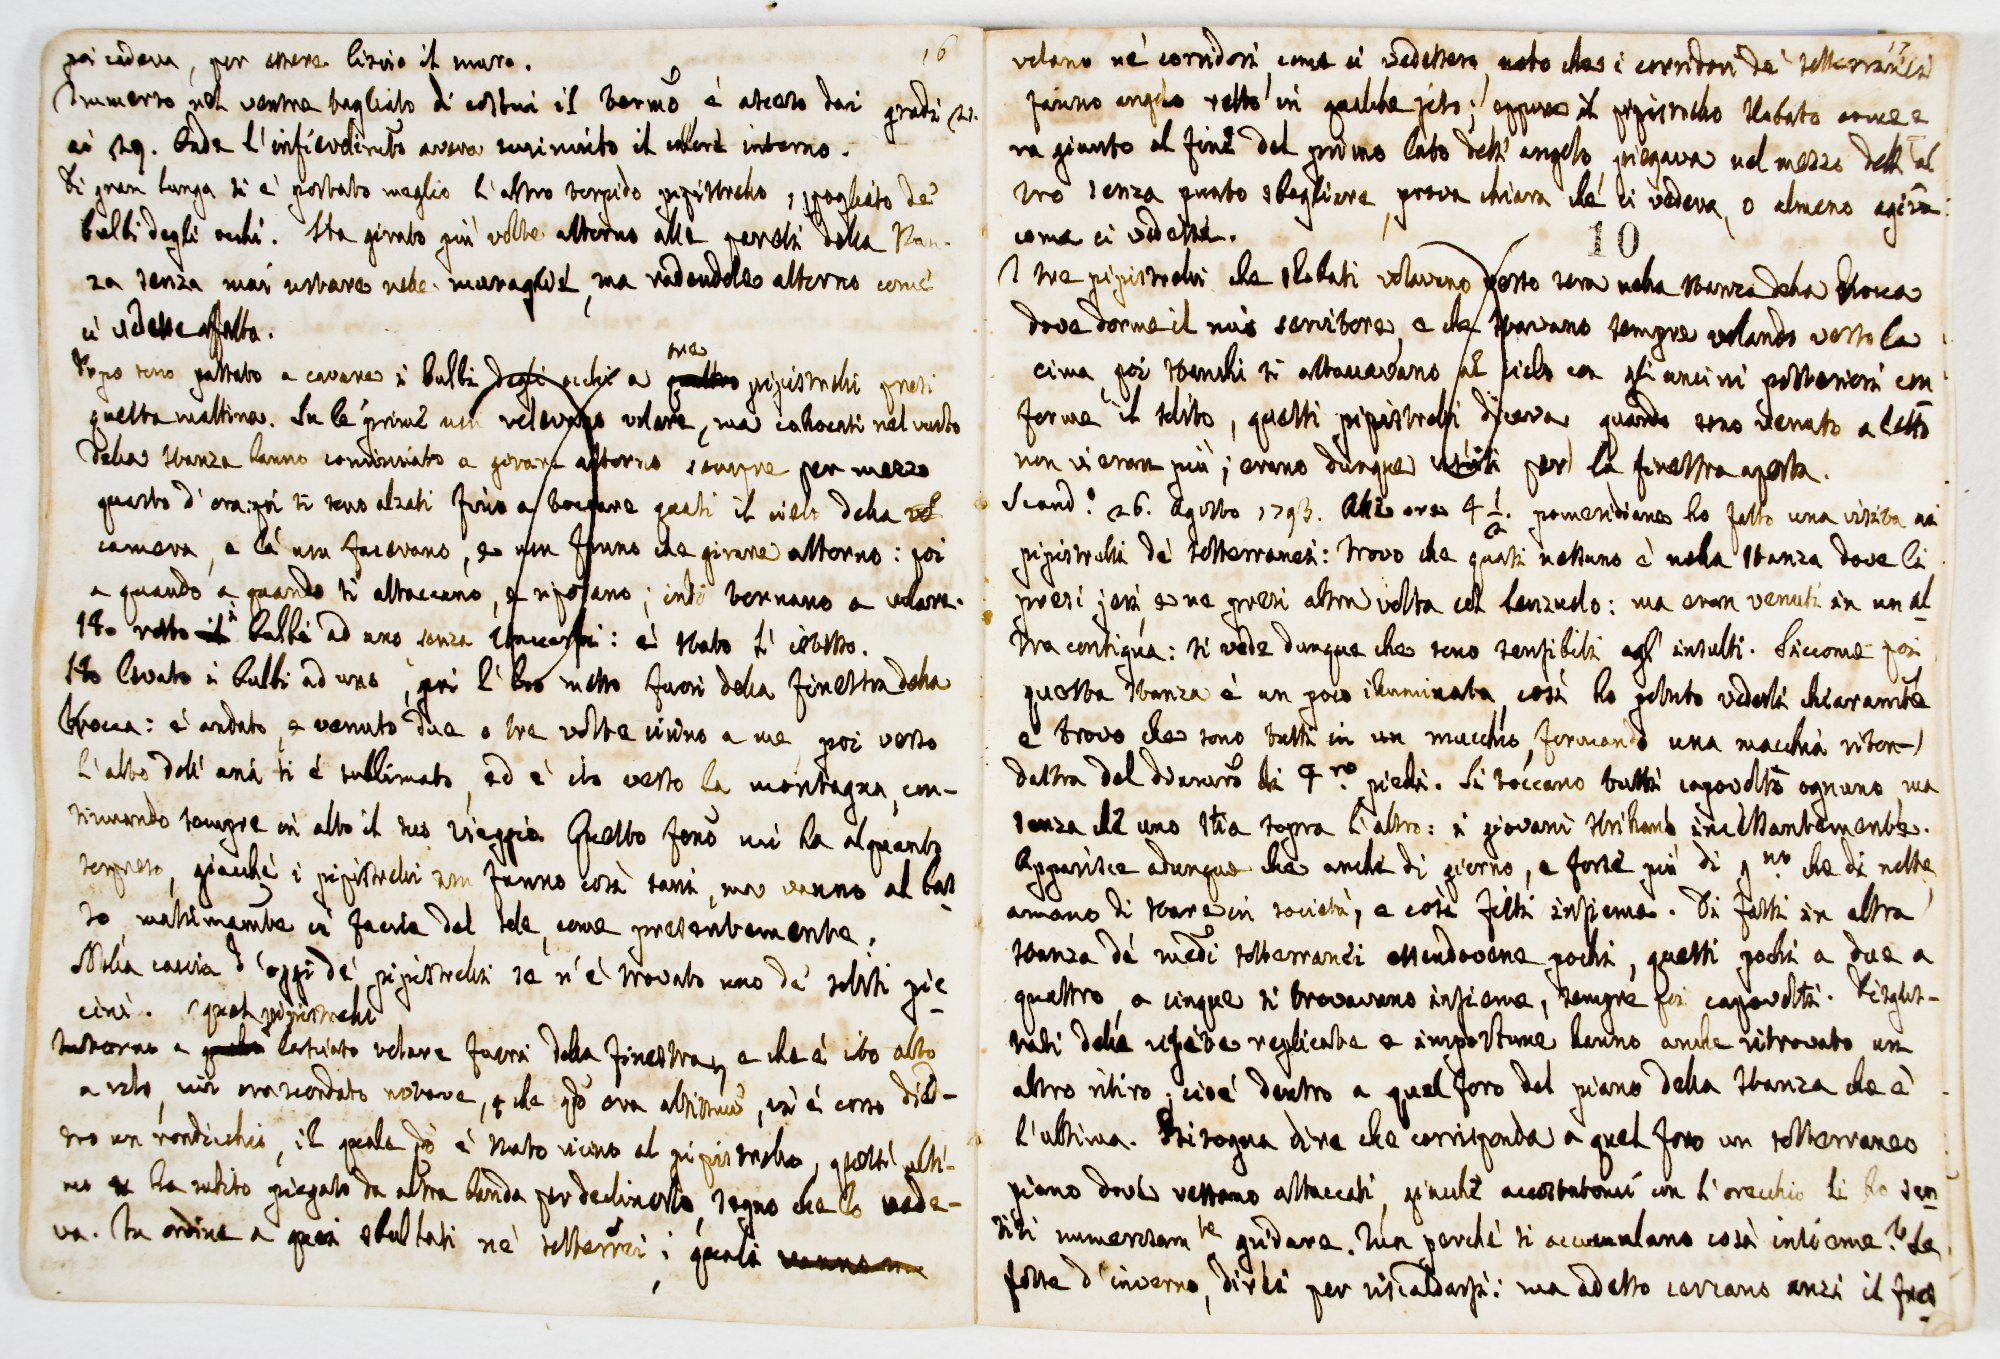 16
poi cadeva, per essere liscio il muro.
Immerso nel ventre tagliato di costui il termo è asceso dai gradi 21.
ai 29. Onde l'infievolimto aveva diminuito il calore interno.
Di gran lunga si è portato meglio l'altro torpido pipistrello, spogliato de'
bulbi degli occhi. Ha girato più volte attorno alle pareti della stan-
za senza mai urtare nelle muraglie, ma radendole attorno come
ci vedesse affatto.
Dopo sono passato a cavare i bulbi degli occhi a quattro tre pipistrelli presi
questa mattina. Su le prime non volevano volare, ma collocati nel vuoto
della stanza hanno cominciato a girare attorno sempre per mezzo
quarto d'ora: poi si sono alzati fino a toccare quasi il cielo della
camera, e là non facevano, e non fanno che girare attorno: poi
a quando a quando si attaccano, e riposano; indi tornano a volare.
Ho rotto il i bulbi ad uno senza staccarli: è stato l'istesso.
Ho levato i bulbi ad uno, poi l'ho messo fuori della finestra della
Rocca: è andato, e venuto due o tre volte vicino a me, poi verso
l'alto dell'aria si è sublimato, ed è ito verso la montagna, con-
tinuando sempre in alto il suo viaggio. Questo feno mi ha alquanto
sorpreso, giacché i pipistrelli non fanno così tosto, ma vanno al bas
so, massimamte in faccia del sole, come presentemente.
Nella caccia d'oggi de' pipistrelli se n'è trovato uno de' soliti pic
cini. quel pipistrello
Intorno a quello lasciato volare fuori della finestra, e che è ito alto
a volo, mi era scordato notare, che qdo era altissimo, vi è corso die-
tro un rondicchio, il quale qdo è stato vicino al pipistrello, quest'ulti-
mo ha subito piegato da altra banda per declinarlo, segno che lo vede-
va. In ordine a quei sbulbati ne' sotterrei, i quali vanno
17
volano ne' corridori, come ci vedessero, noto che i corridori de' sotterranei
fanno angolo retto in qualche sito; eppure il pipistrello sbulbato come e
ra giunto al fine del primo lato dell'angolo, piegava nel mezzo dell'al
tro senza punto sbagliare, prova chiara che ci vedeva, o almeno agiva
come ci vedesse.
10
I tre pipistrelli che sbulbati volavano verso sera nella stanza della Rocca
dove dorme il mio servitore, e che stavano sempre volando verso la
cima, poi stanchi si attaccavano al cielo con gli uncini posteriori con
forme il solito, questi pipistrelli diceva quando sono venuto a letto
non vi eran più; erano dunque usciti per la finestra aperta.
Scand.o 26. Agosto 1793. Alle ore 4 1/2. pomeridiane ho fatto una visita ai
pipistrelli de' sotterranei: trovo che quasi nessuno è nella stanza dove li
presi jeri, e ne presi altra volta col lenzuolo: ma eran venuti in un al
tra contigua: si vede dunque che sono sensibili agl'insulti. Siccome poi
questa stanza è un poco illuminata, così ho potuto vederli chiaramte
e trovo che sono tutti in un mucchio, formando una macchia riton-
dastra del diametro di 4.ro piedi. Si toccano tutti capovolti ognuno ma
senza che uno stia sopra l'altro: i giovani strillano incessantemente.
Apparisce adunque che anche di giorno, e forse più di gno che di notte
amano di stare in società, e così fitti insieme. Di fatti in altra
stanza de' medi sotterranei essendovene pochi, questi pochi a due a
quattro, o cinque si trovavano insieme, sempre poi capovolti. Disgus-
tati delle visite replicate e importune hanno anche ritrovato un
altro ritiro, cioè dentro a quel foro del piano della stanza che è
l'ultima. Bisogna dire che corrisponda a quel foro un sotterraneo
piano dove restano attaccati, giacché accostatomi con l'orecchio li ho sen
titi numerosamte gridare. Ma perché si accumulano così insieme? Se
fosse d'inverno, direi per riscaldarsi: ma adesso cercano anzi il fres